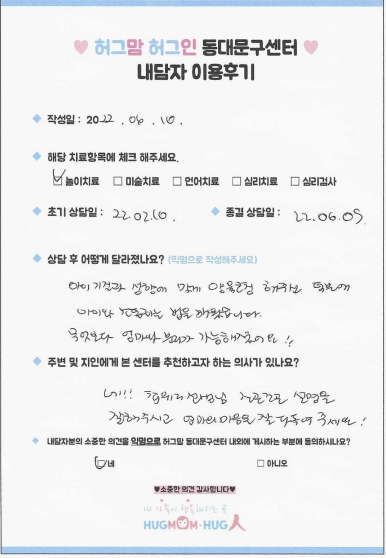 ♥ 허그맘 허그인 동대문구센터 ♥
내담자 이용후기
◆ 작성일 : 2022 . 06 . 10 .
◆ 해당 치료항목에 체크 해주세요.
☑ 놀이치료 □ 미술치료 □ 언어치료 □ 심리치료 □ 심리검사
◆ 초기 상담일 : 22.02.10. ◆ 종결 상담일 : 22.06.09.
◆ 상담 후 어떻게 달라졌나요? (익명으로 작성해주세요)
아이 기질과 성향에 맞게 양육코칭 해주신 덕분에
아이와 소통하는 법을 배웠습니다.
무엇보다 엄마와 분리가 가능해졌어요!!
◆ 주변 및 지인에게 본 센터를 추천하고자 하는 의사가 있나요?
네!!! 선생님 설명을
잘해주시고 엄마의 마음도 잘 다독여 주세요!
◆ 내담자분의 소중한 의견을 익명으로 허그맘 동대문구센터 내외에 게시하는 부분에 동의하시나요?
☑ 네 □ 아니오
♥소중한 의견 감사합니다♥
내 가족이 행복해지는 곳
HUGMOM·HUG人